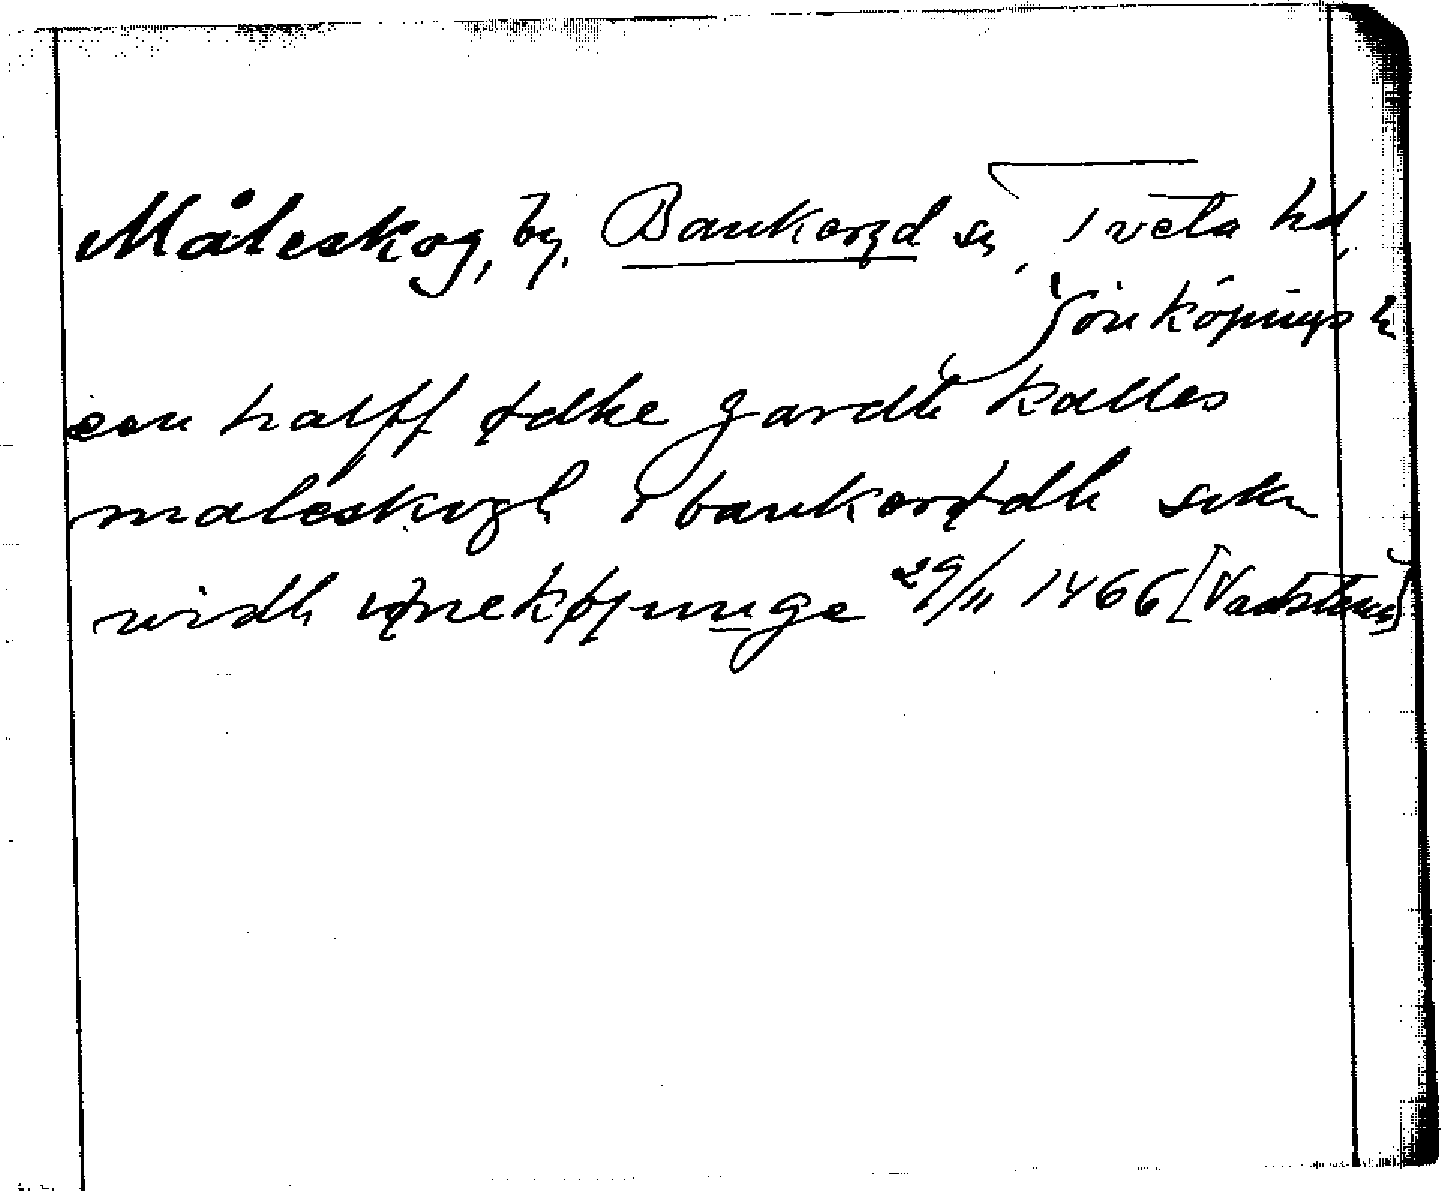 Måleskog, by, Bankeryd sn, Tveta hd,
Jönköpings l.
een halff ødhe gardh kalles
maleskogh i bankerødh sokn
widh iønekøpunge 29/11 1466 [Vadstena]